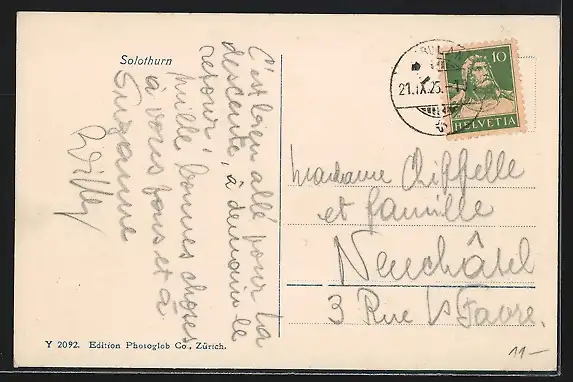 Solothurn
C'est bien allé pour la
descente, à demain le
retour,
Mille bonnes choses
à vous tous et à
Suzanne
Willy
10
21.IX.25.
HELVETIA
Madame Chiffelle
et famille
Neuchâtel
3 Rue Ls Favre.
Y 2092. Edition Photoglob Co., Zürich.
11-